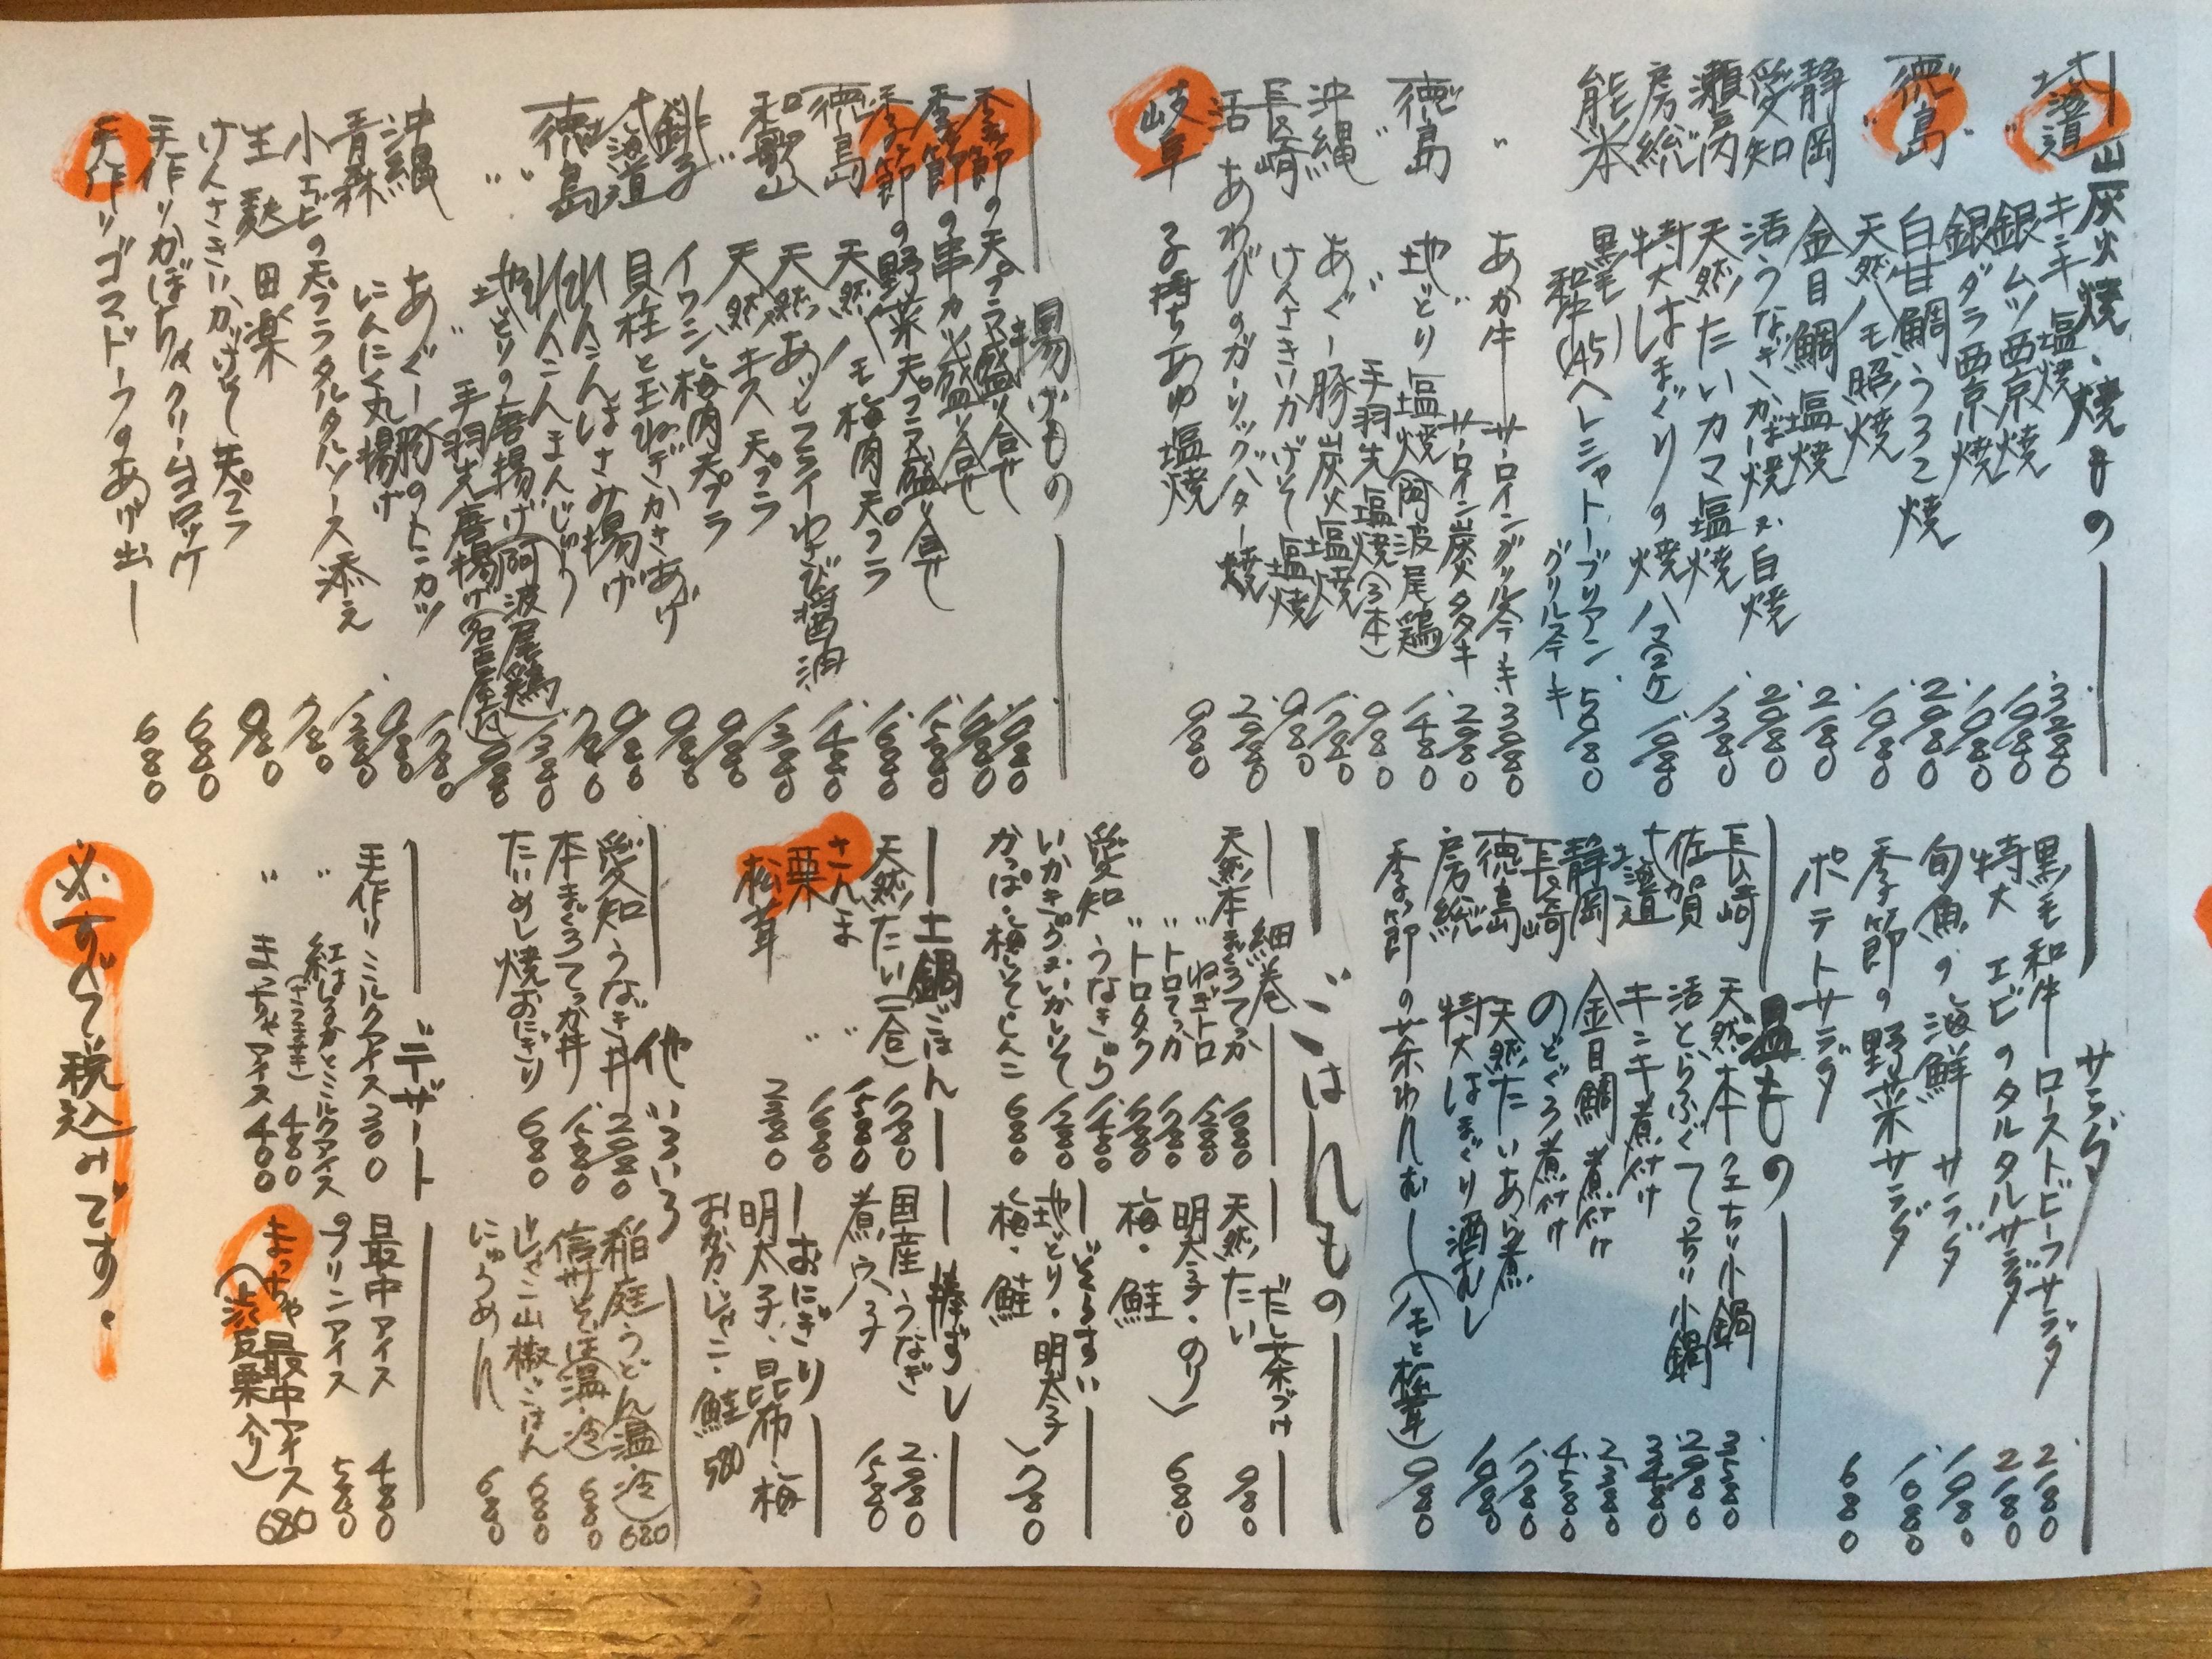 炭火焼、焼もの
北海道 キンキ 塩焼 3280
〃 銀ムツ西京焼 1980
〃 銀ダラ西京焼 1980
徳島 白甘鯛うろこ焼 2980
〃 天然ハモ照焼 1980
静岡 金目鯛塩焼 2180
愛知 活うなぎ かば焼 又 白焼 2980
瀬戸内 天然たいカマ塩焼 1380
房総 特大はまぐりの焼ハマ(2ケ) 1080
熊本 黒毛和牛(A5)ヘレシャトーブリアングリルステーキ 5080
〃 あか牛サーロイングリルステーキ 3080
サーロイン炭タタキ 2080
徳島 地どり塩焼(阿波尾鶏) 1480
〃 〃 手羽先塩焼(3本) 980
沖縄 あぐー豚炭火塩焼 1780
長崎 けんさきいかげそ塩焼 980
活あわびのガーリックバター焼 2980
岐阜 子持ちあゆ塩焼 980
揚げもの
季節の天プラ盛り合せ 1980
季節の串カツ盛り合せ 1980
季節の野菜天プラ盛り合せ 1580
徳島 天然ハモ梅肉天プラ 1680
和歌山 天然あじフライわさび醤油 1480
〃 天然キス天プラ 1380
銚子 イワシ梅肉天プラ 980
北海道 貝柱と玉ねぎかきあげ 980
徳島 れんこんはさみ揚げ 980
〃 れんこんまんじゅう 780
〃 地どりの唐揚げ(阿波尾鶏) 1380
〃 手羽先唐揚げ(名古屋風) 980
沖縄 あぐー豚のトンカツ 1780
青森 にんにく丸揚げ 980
小エビの天プラタルタルソース添え 1380
生麩田楽 780
けんさきいかげそ天プラ 980
手作りかぼちゃクリームコロッケ 680
手作りゴマドーフのあげ出し 680
サラダ
黒毛和牛ローストビーフサラダ 2180
特大エビのタルタルサラダ 2180
旬魚の海鮮サラダ 1980
季節の野菜サラダ 1080
ポテトサラダ 680
温もの
長崎 天然本クエちり小鍋 3580
佐賀 活とらふぐてっちり小鍋 2980
北海道 キンキ煮付け 3480
静岡 金目鯛煮付け 2380
長崎 のどぐろ煮付け 4580
徳島 天然たいあら煮 1780
房総 特大はまぐり酒むし 1080
季節の茶わんむし(ハモと松茸) 980
ごはんもの
細巻
天然本まぐろてっか 1680
〃 ねぎトロ 1380
〃 トロてっか 1780
〃 トロタク 1580
愛知 うなきゅう 1480
いかきゅう又いかしそ 1280
かっぱ・梅しそ・しんこ 680
だし茶づけ
天然たい 980
明太子・のり
梅・鮭 680
ぞうすい
地どり・明太子
梅・鮭 780
土鍋ごはん
天然たい(一合) 1780
さんま 1580
栗 〃 1680
松茸 〃 2380
棒ずし
国産うなぎ 2980
煮穴子 1580
おにぎり
明太子、昆布、梅
おかか・じゃこ・鮭 580
他いろいろ
愛知うなぎ丼 2980
本まぐろてっか丼 1580
たいめし焼おにぎり 680
稲庭うどん(温・冷) 680
信州そば(温・冷) 680
じゃこ山椒ごはん 680
にゅうめん 680
デザート
手作りミルクアイス 300
〃 紅はるかとミルクアイス(さつまいも) 480
〃 まっちゃアイス 400
最中アイス 480
プリンアイス 580
まっちゃ最中アイス(渋皮栗入り) 680
※すべて税込みです。